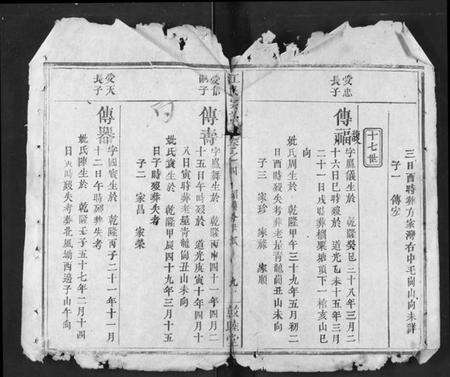 三日酉時葬方家灣右中壬向山向未詳
子一 傳家
十七世
愛忠
長子
傳福
字風儀生於 乾隆癸巳三十八年三月二
十六日巳時歿於 道光乙未十五年三月
二十一日戌時葬楓栗塘頂下一棺亥山巳
向
妣氏周生於 乾隆甲午三十九年五月初二
日酉時歿失考葬老屋青龍嘴丑山未向
子三 家珍 家 家順
江
九
敦睦堂
愛信
長子
傳壽
字鳳舞生於 乾隆丙申四十一年四月二
十五日午時歿於 道光庚寅十年四月十
八日寅時葬老屋青龍嘴丑山未向
妣氏黃生於 乾隆甲辰四十九年三月十五
日子時歿葬失考
子二 家昌 家榮
愛天
長子
傳器
字國寶生於 乾隆丙子二十一年十一月
十二日午時歿葬失考
妣氏陳生於 乾隆壬子五十七年二月十四
日 時歿失考葬北風塆酉邊子山午向